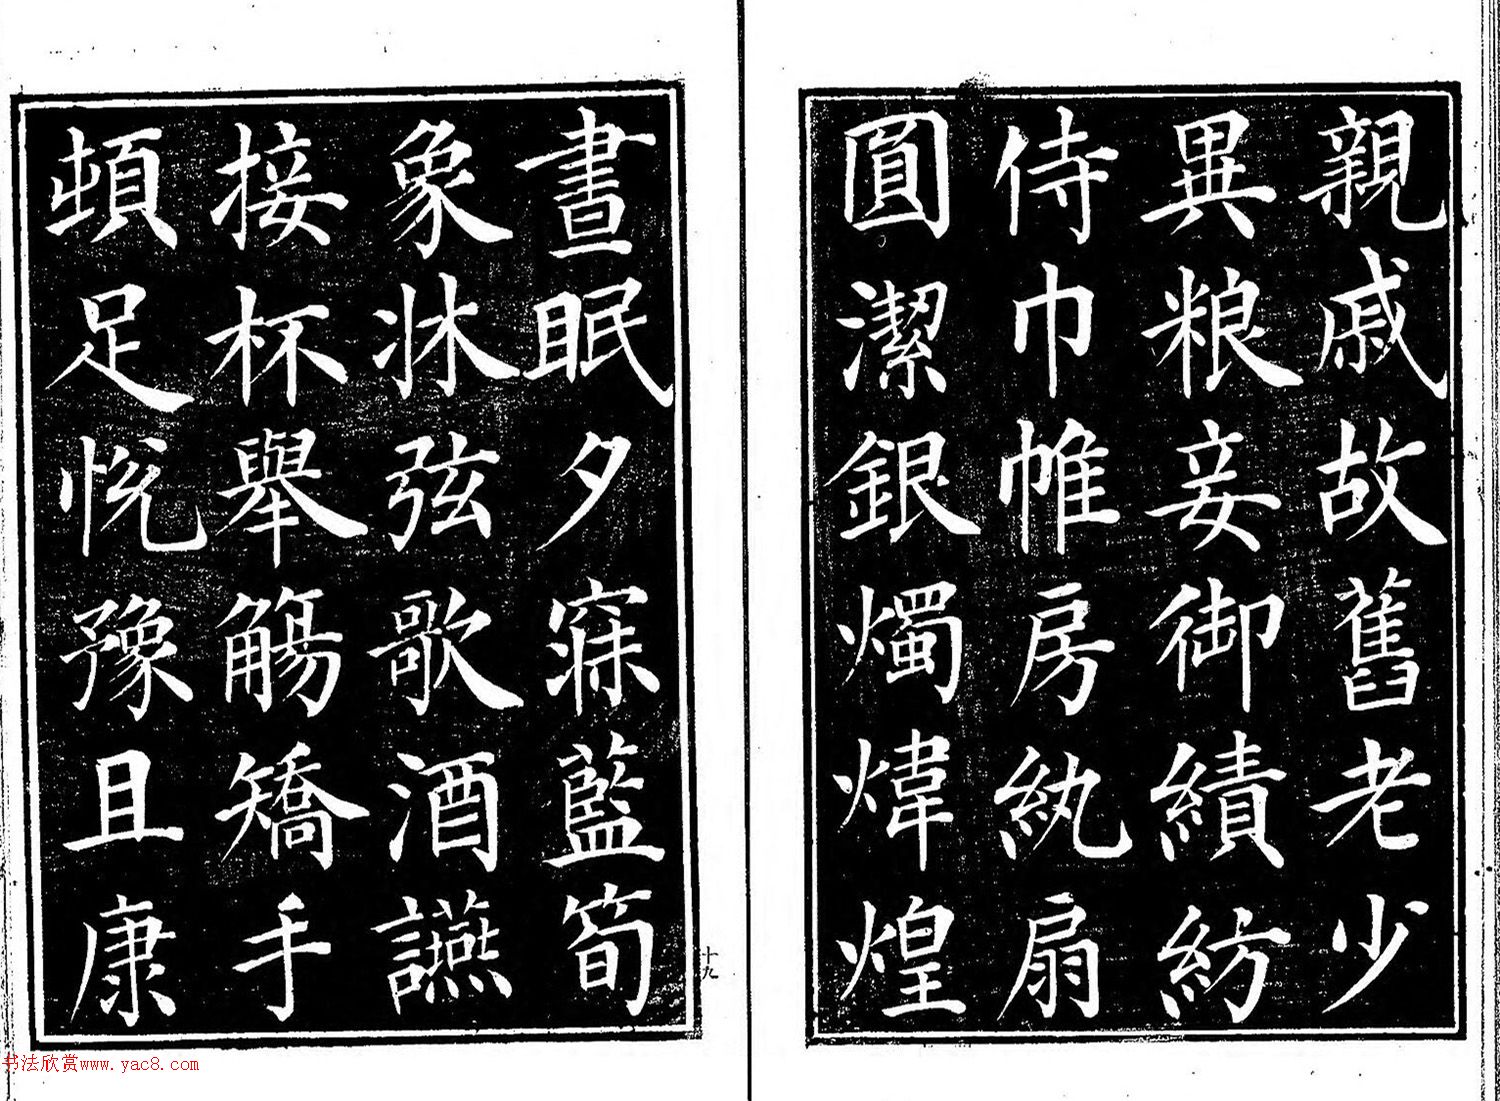 親戚故舊老少
異粮妾御績紡
侍巾帷房紈扇
圓潔銀燭煒煌
晝眠夕寐藍筍
象牀弦歌酒讌
接杯舉觴矯手
頓足悅豫且康
十九
书法欣赏www.yac8.com